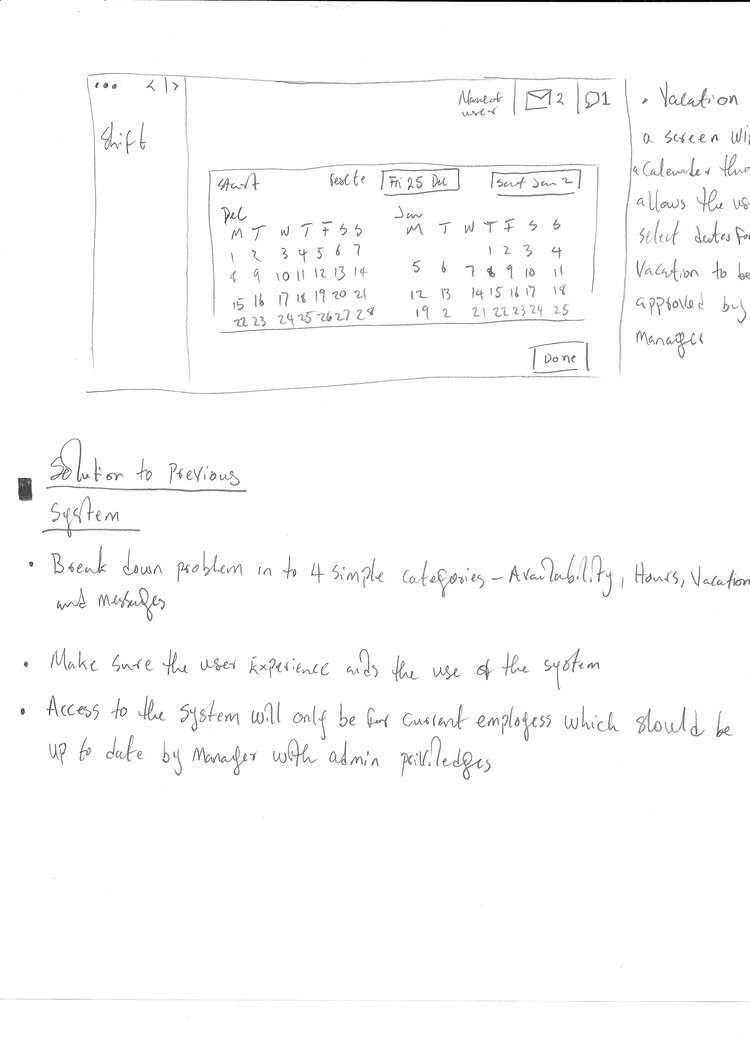 ... < | >
Name of
user
2
1
Shift
Start
Fri 25 Dec
Sat Jan 2
Dec
Jan
M T W T F S S
M T W T F S S
1 2 3 4 5 6 7
1 2 3 4
8 9 10 11 12 13 14
5 6 7 8 9 10 11
15 16 17 18 19 20 21
12 13 14 15 16 17 18
22 23 24 25 26 27 28
19 2 21 22 23 24 25
Done
• Vacation
a screen wi
a Calender tha
allows the us
select dates for
Vacation to be
approved by
Manager
Solution to Previous
System
• Break down problem in to 4 simple categories - Availability, Hours, Vacation
and messages
• Make sure the user Experience aids the use of the system
• Access to the system will only be for current employess which should be
up to date by Manager with admin priviledges